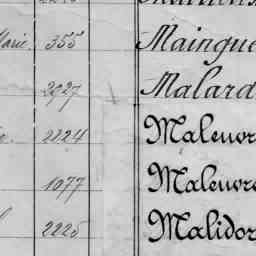 Marie 355 Maingue
2927 Malard
2124 Malenor
1077 Malenor
2225 Malidor